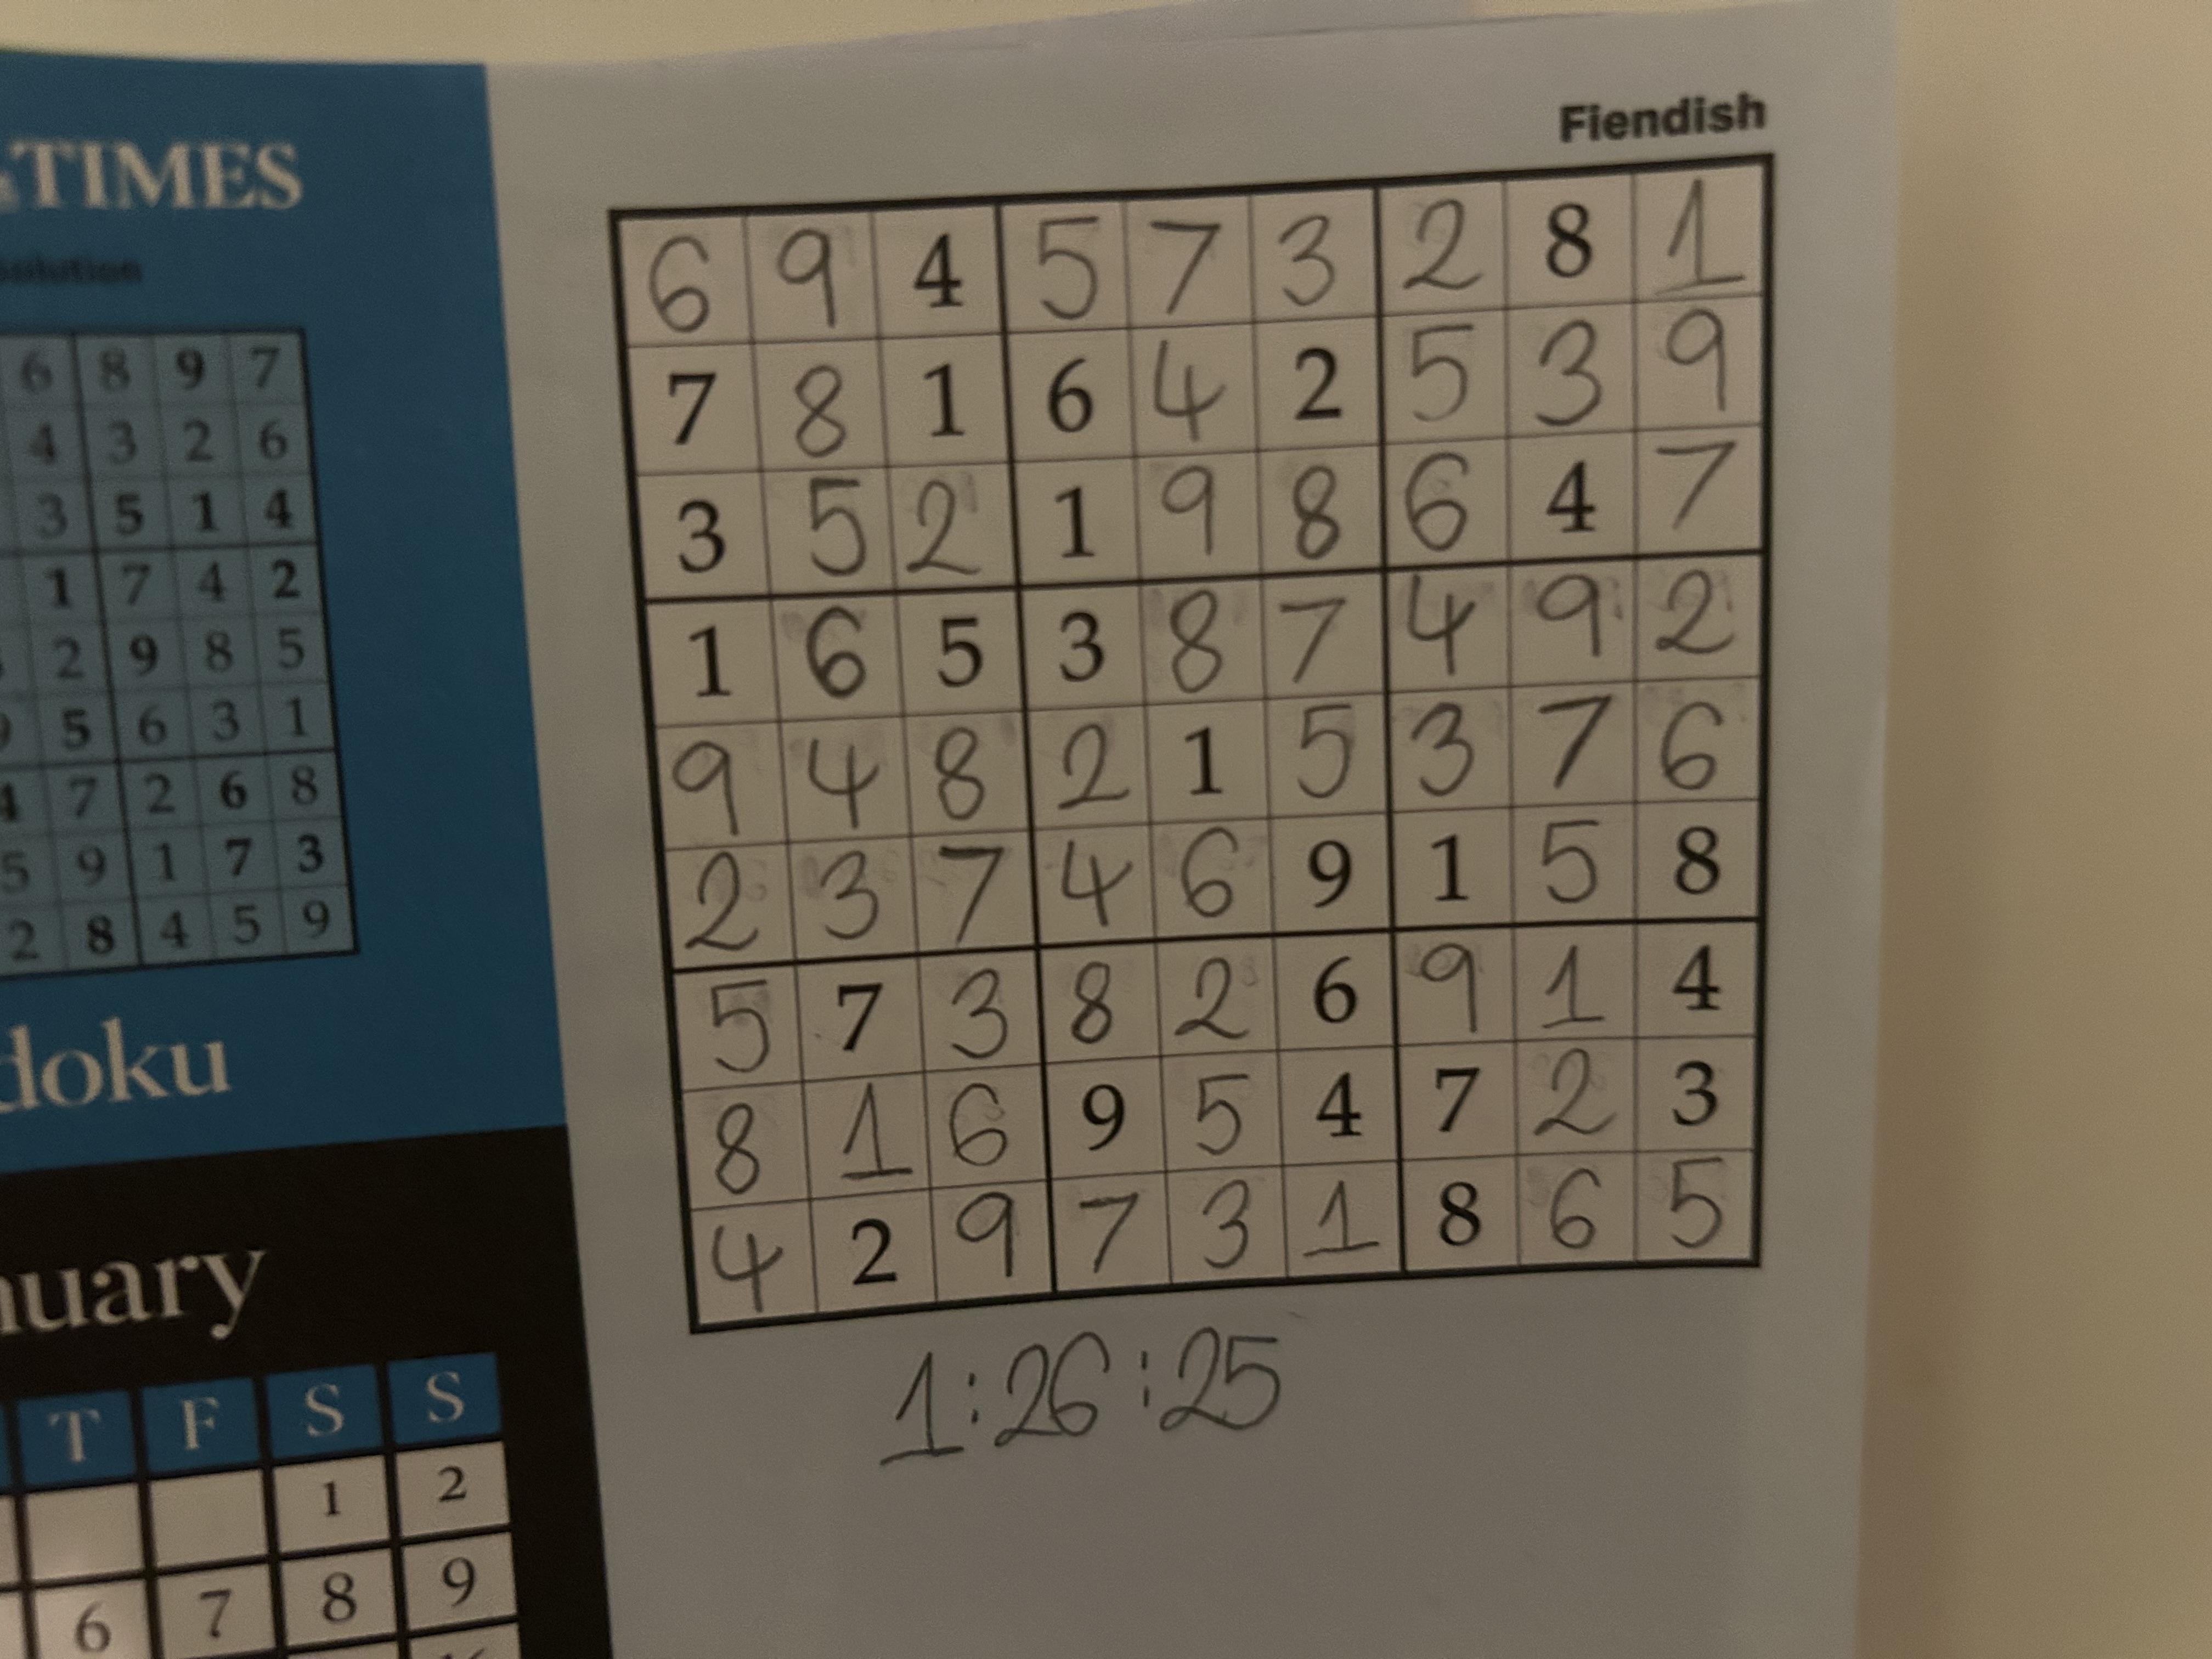 TIMES
solution
6 8 9 7
4 3 2 6
3 5 1 4
1 7 4 2
2 9 8 5
9 5 6 3 1
4 7 2 6 8
5 9 1 7 3
2 8 4 5 9
doku
nuary
T F S S
1 2
6 7 8 9
Fiendish
6 9 4 5 7 3 2 8 1
7 8 1 6 4 2 5 3 9
3 5 2 1 9 8 6 4 7
1 6 5 3 8 7 4 9 2
9 4 8 2 1 5 3 7 6
2 3 7 4 6 9 1 5 8
5 7 3 8 2 6 9 1 4
8 1 6 9 5 4 7 2 3
4 2 9 7 3 1 8 6 5
1:26:25